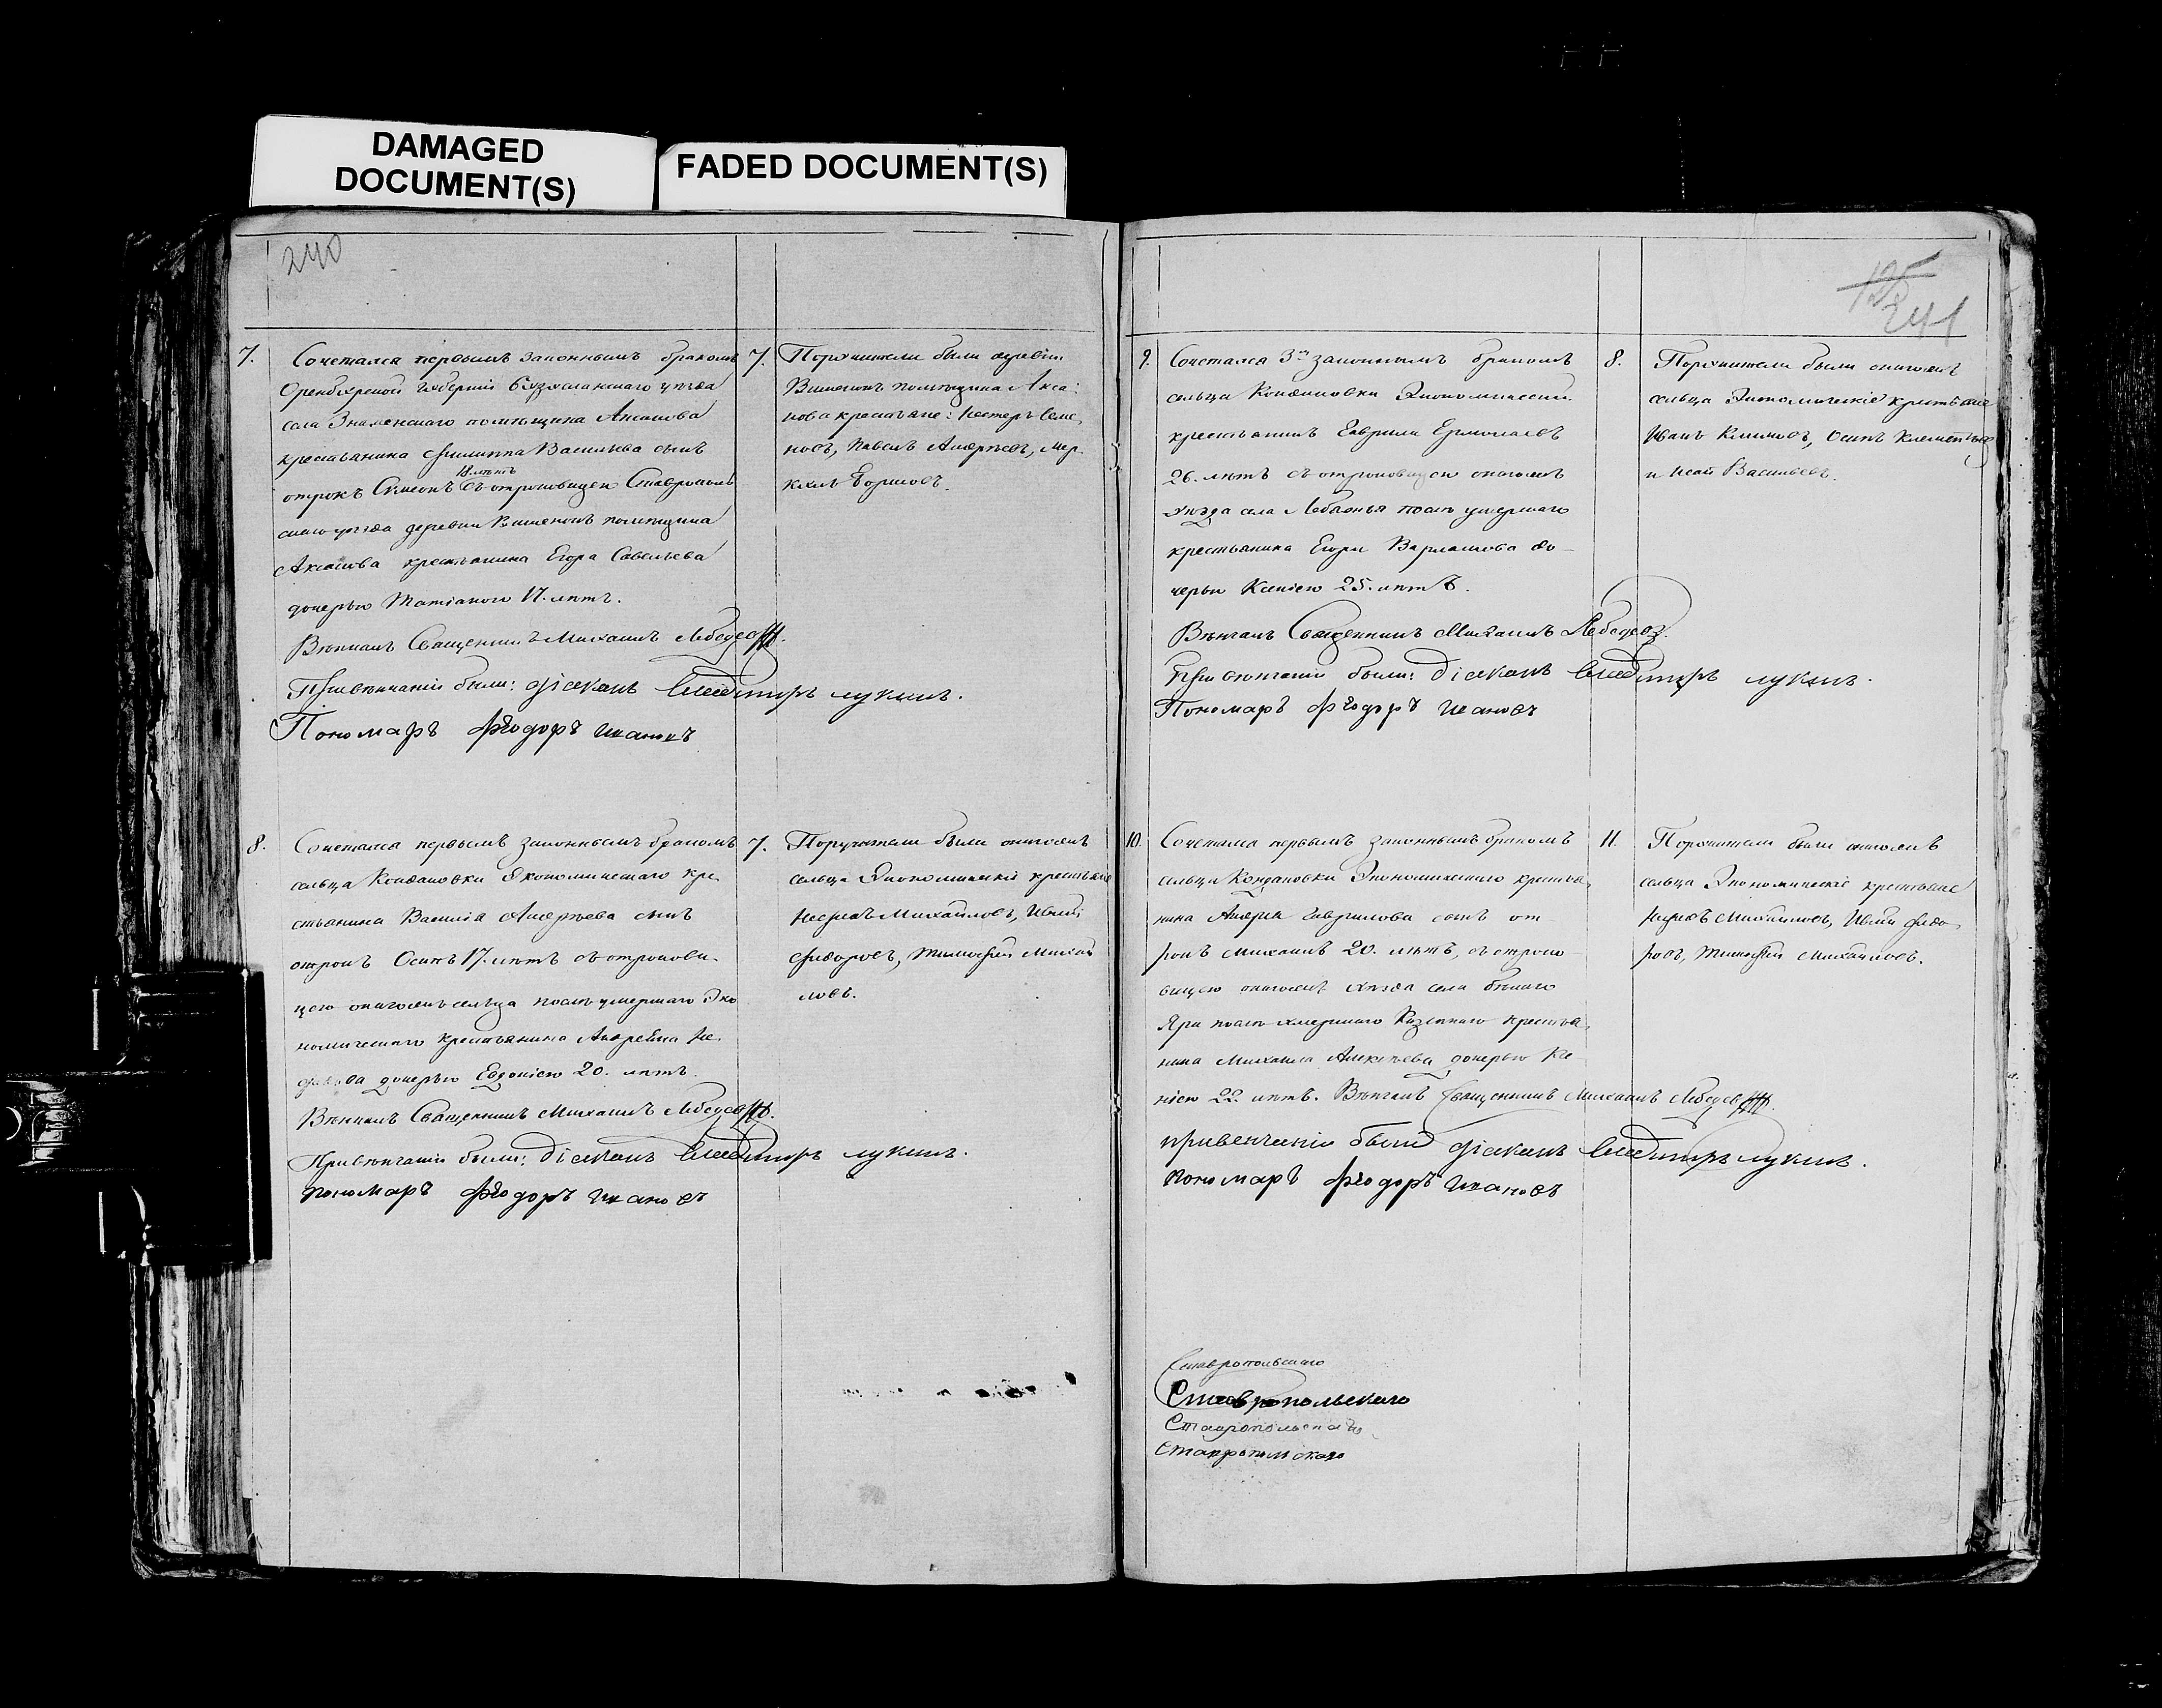 DAMAGED
DOCUMENT(S)
FADED DOCUMENT(S)
240
7.
Сочетался первымъ законнымъ бракомъ
Оренбургской губерніи Бузулакскаго уѣзда
села Знаменскаго помѣщика Аксакова
крестьянина Филиппа Васильева сынъ
18. лѣтъ
отрокъ Симеонъ съ отроковицею Ставрополь
скаго уѣзда деревни Вишенокъ помѣщика
Аксакова крестьянина Егора Савельева
дочерью Татіаною 17. лѣтъ.
Вѣнчалъ Священникъ Михаилъ Лебедевъ.
При вѣнчаніи были: діаконъ Владимиръ Лукинъ.
Пономарь Ѳеодоръ Ивановъ
7.
Поручители были деревни
Вишенокъ помѣщика Акса:
кова крестьяне: Нестеръ Семе,
новъ, Павелъ Андрѣевъ,
Борисовъ.
8.
Сочетался первымъ законнымъ бракомъ
сельца Кондаковки Экономическаго кре,
стьянина Василія Андрѣева сынъ
отрокъ Осипъ 17. лѣтъ съ отрокови-
цею онагожъ сельца послѣ умершаго Эко
номическаго крестьянина Андрея
дочерью Евдокіею 20. лѣтъ.
Вѣнчалъ Священникъ Михаилъ Лебедевъ.
При вѣнчаніи были: діаконъ Владимиръ Лукинъ.
пономарь Ѳеодоръ Ивановъ
7.
Поручители были онагожъ
сельца Экономическіе крестьяне
Михайловъ,
Ѳедоровъ, Тимофей Михай
ловъ.
241
9.
Сочетался 3мъ законнымъ бракомъ
сельца Кондаковки Экономической
крестьянинъ Гаврила Ермолаевъ
26. лѣтъ съ отроковицею онагожъ
уѣзда села послѣ умершаго
крестьянина Егора Варламова до-
черью Ксеніею 25. лѣтъ.
Вѣнчалъ Священникъ Михаилъ Лебедевъ.
При вѣнчаніи были: діаконъ Владимиръ Лукинъ.
Пономарь Ѳеодоръ Ивановъ
8.
Поручители были онагожъ
сельца Экономическіе крестьяне
Иванъ Климовъ, Осипъ
и Исай Васильевъ.
10.
Сочетался первымъ законнымъ бракомъ
сельца Кондаковки Экономическаго крестья,
нина Андрея Гаврилова сынъ от
рокъ Михаилъ 20. лѣтъ, съ отроко-
вицею онагожъ уѣзда села Бѣлаго
Яра послѣ умершаго Казеннаго крестья,
нина Михаила Алексѣева дочерью Ксе
ніею 22. лѣтъ. Вѣнчалъ Священникъ Михаилъ Лебедевъ.
при венчаніи были діаконъ Владимиръ Лукинъ.
пономарь Ѳеодоръ Ивановъ
11.
Поручители были онагожъ
сельца Экономическіе крестьяне
Михайловъ, Ѳедо,
ровъ, Тимофей Михайловъ.
Ставропольскаго
Ставропольскаго
Ставропольскаго
Ставропольскаго